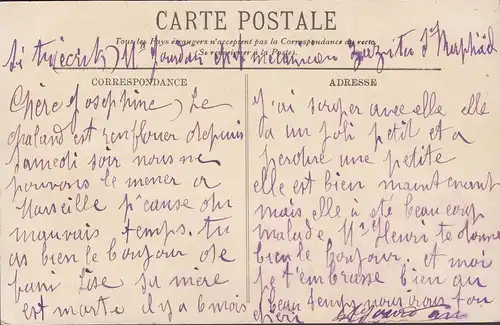 CARTE POSTALE
Tous les Pays étrangers n'acceptent pas la Correspondance au recto
(Se renseigner à la Poste).
Si tu écrit Mr Jourdan chef mecanicien St Raphaël
CORRESPONDANCE
Chère Josephine Le
chaland est renflouer depuis
samedi soir nous ne
pouvons le mener a
Marseille p'cause du
mauvais temps. tu
as bien le bonjour de
Lise sa mère
est marte il y a 6 mois
ADRESSE
J'ai souper avec elle elle
a un joli petit et a
perdue une petite
elle est bien maintenant
mais elle à été beaucoup
malade Mr Henri te donne
bien le bonjour. et moi
je t'embrasse bien au
beau temps nous irons ton
chéri Jourdan